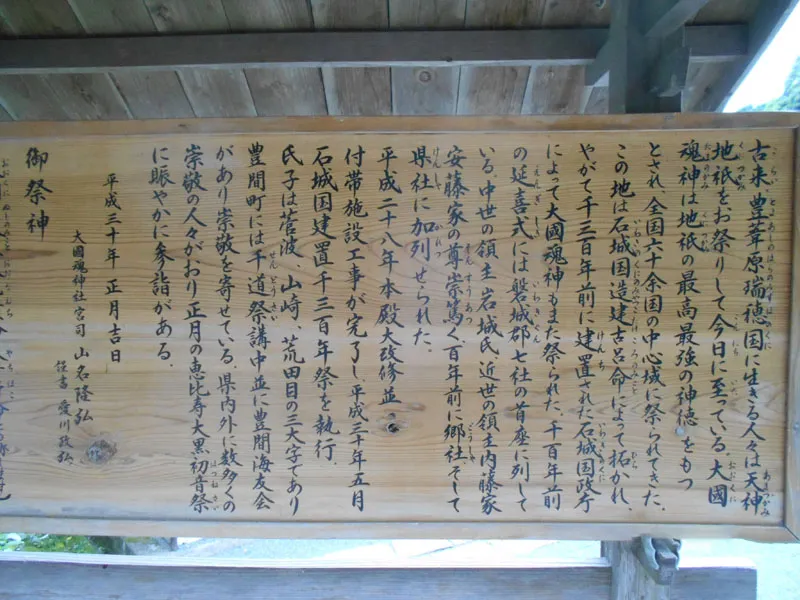 古来、豊葦原瑞穂国に生きる人々は天神
地祇をお祭りして今日に至っている。大國
魂神は地祇の最高最強の神徳をもつ
とされ、全国六十余国の中心域に祭られてきた。
この地は石城国造建古呂命によって拓かれ、
やがて千三百年前に建置された石城国政庁
によって大國魂神もまた祭られた。千百年前
の延喜式には磐城郡七社の首座に列して
いる。中世の領主岩城氏、近世の領主内藤家
安藤家の尊崇篤く、百年前に郷社そして
県社に加列せられた。
平成二十八年本殿大改修並
付帯施設工事が完了し、平成三十年五月
石城国建置千三百年祭を執行。
氏子は菅波、山崎、荒田目の三大字であり
豊間町には千道祭講中並に豊間海友会
があり崇敬を寄せている。県内外に数多くの
崇敬の人々がおり正月の恵比寿大黒初音祭
に賑やかに参詣がある。
平成三十年 正月吉日
大國魂神社宮司 山名隆弘
謹書 愛川敬弘
御祭神